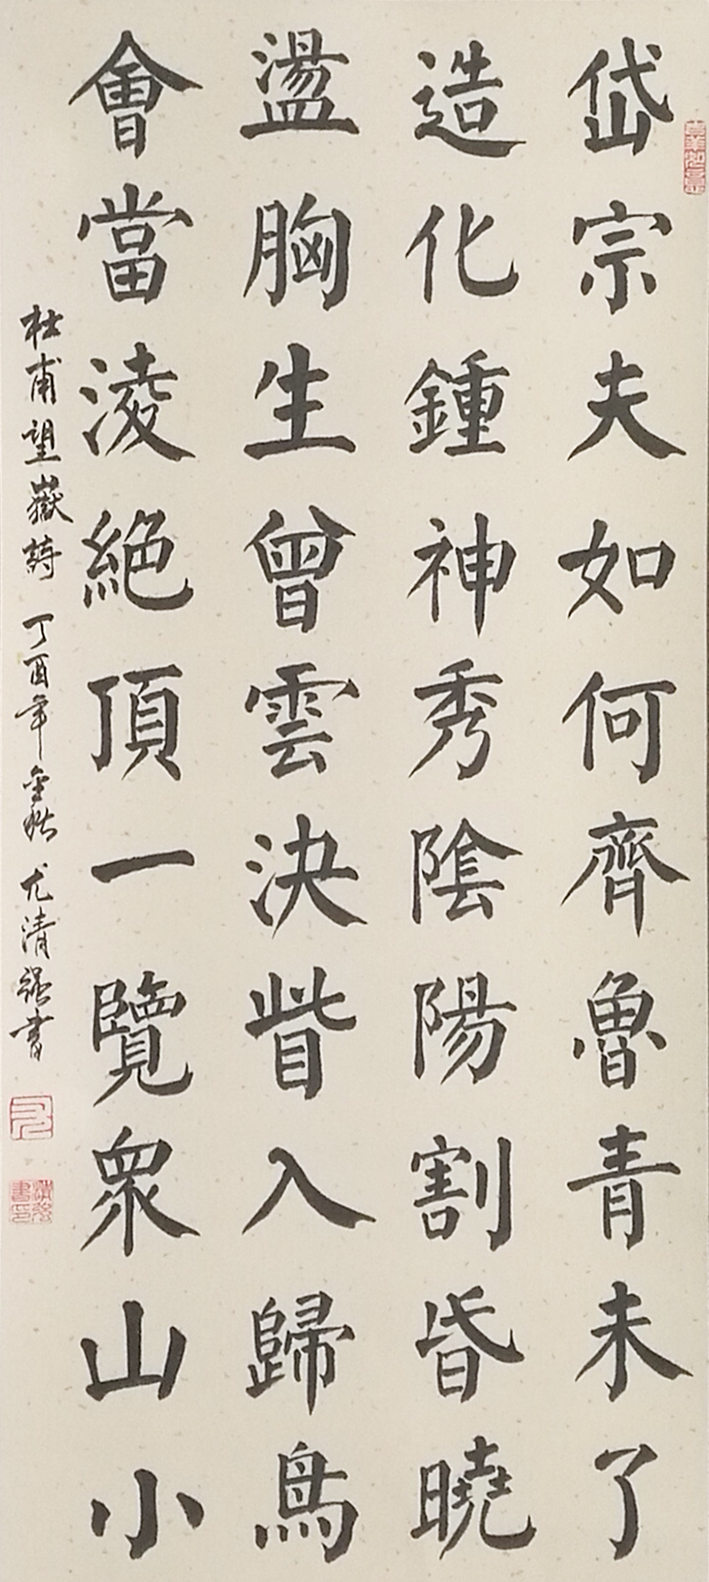 岱宗夫如何齊魯青未了
造化鍾神秀陰陽割昏曉
盪胸生曾雲決眥入歸鳥
會當淩絕頂一覽衆山小
杜甫望嶽詩 丁酉年金秋 尤清强書